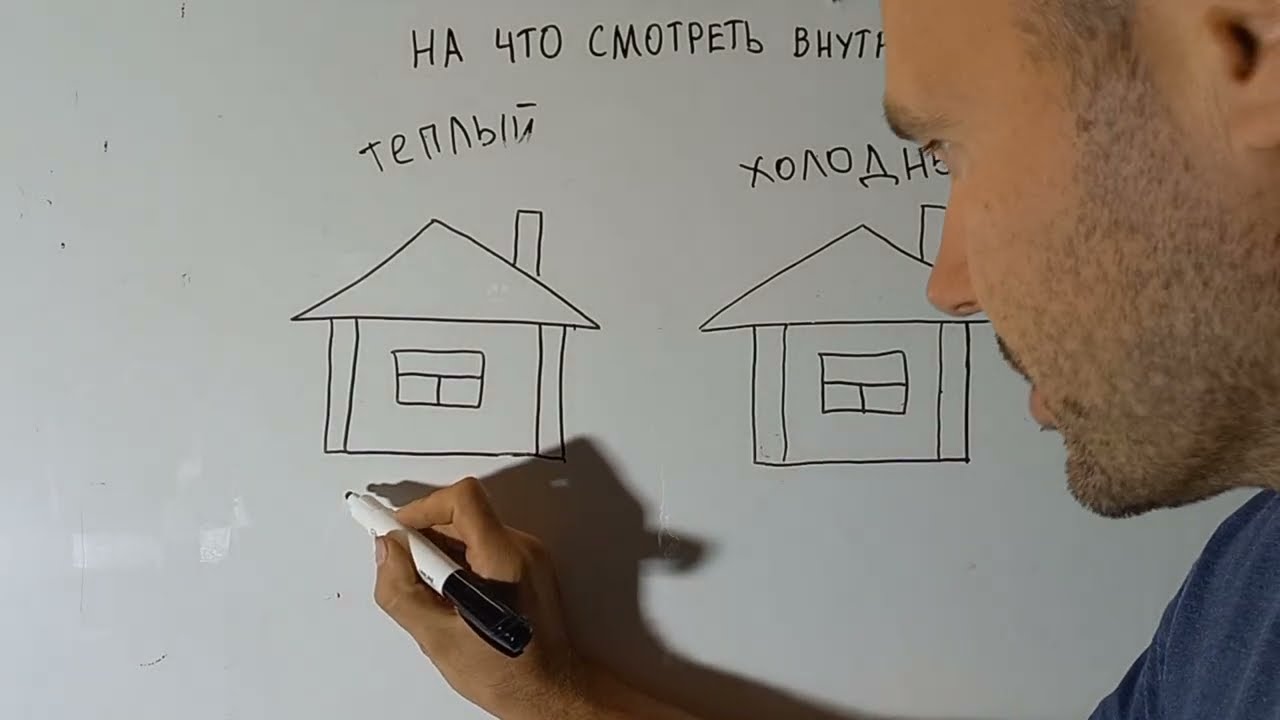 НА ЧТО СМОТРЕТЬ ВНУТР
ТЕПЛЫЙ
ХОЛОДН